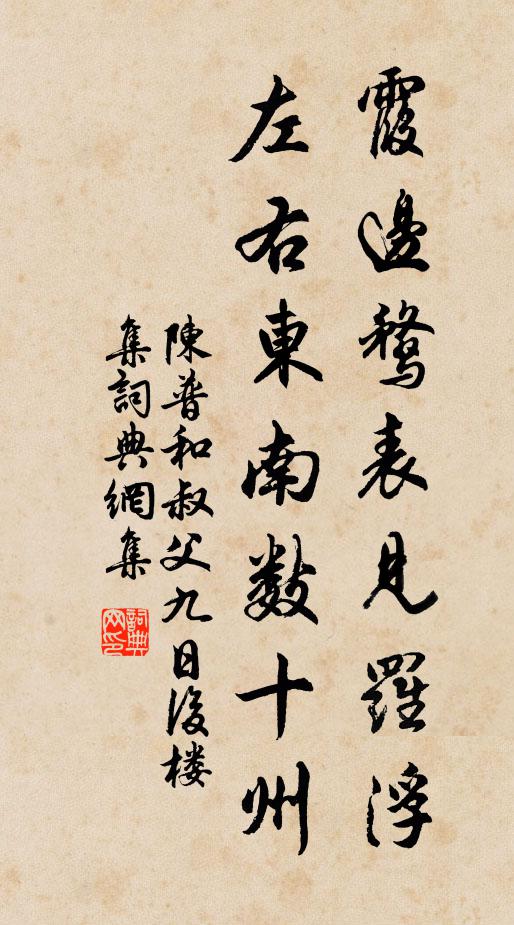 霞邊鶩表見羅浮
左右東南數十州
陳普和叔父九日後楼
集詞典網集
詞典网印